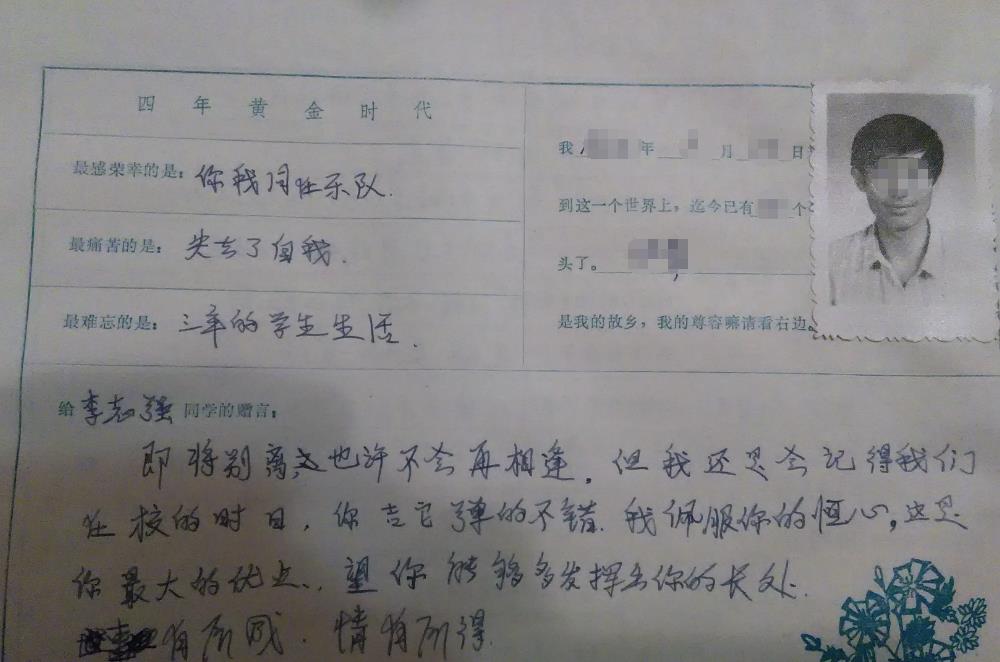 四年黄金时代
最感荣幸的是：你我同在乐队.
最痛苦的是：失去了自我.
最难忘的是：三年的学生生活.
我 年 月 日
到这一个世界上，迄今已有 个
头了。
是我的故乡，我的尊容嘛请看右边。
给李志强同学的赠言：
即将别离，也许不会再相逢，但我还是会记得我们
在校的时日，你吉它弹的不错.我佩服你的恒心，这是
你最大的优点，望你能够多发挥出你的长处.
有所感.情有所得.